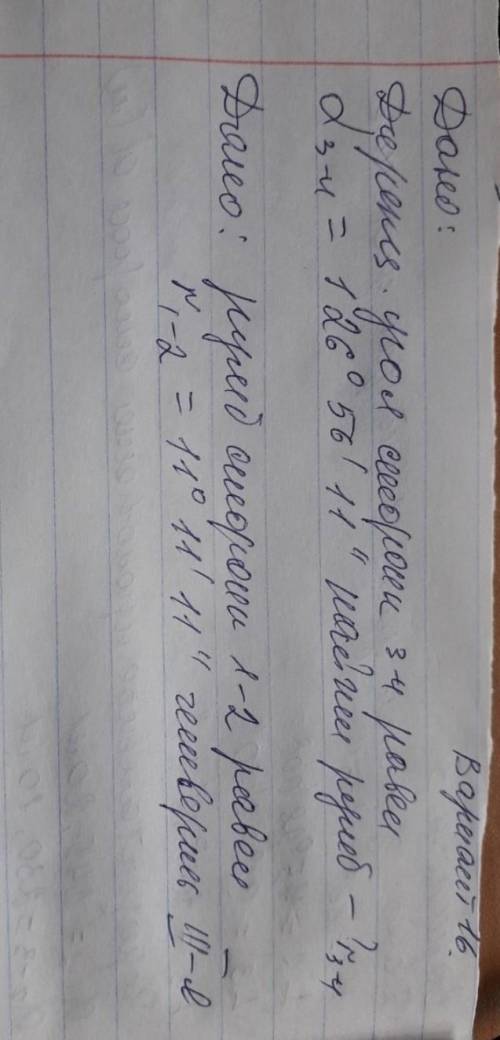 Вариант 16.
Дано:
Дерекц. угол стороны 3-4 равен
α₃₋₄ = 126° 56' 11" найти румб - r₃₄
Дано: румб стороны 1-2 равен
r₁₋₂ = 11° 11' 11" четверть III-я